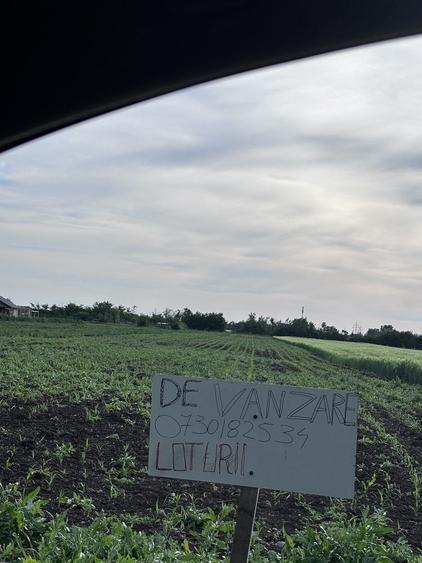 DE VANZARE
0730182534
LOTURII.